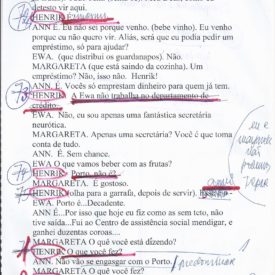 detesto vir aqui.
HENRIK
ANN É. Eu não sei porque venho. (bebe vinho). Eu venho
porque eu não quero vir. Aliás, será que eu podia pedir um
empréstimo, só para ajudar?
EWA. (que distribui os guardanapos). Não.
MARGARETA (que está saindo da cozinha). Um
empréstimo? Não, isso não. Henrik!
ANN É. Vocês só emprestam dinheiro para quem já tem.
HENRIK A Ewa não trabalha no departamento de
crédito.
EWA. Não, eu sou apenas uma fantástica secretária
neurótica.
MARGARETA. Apenas uma secretária? Você é que toma
conta de tudo.
ANN É. Sem chance.
EWA O que vamos beber com as frutas?
HENRIK Porto, não é?
MARGARETA. É gostoso.
HENRIK (olha para a garrafa, depois de servir).
EWA. Porto é...Decadente.
ANN É...Por isso que hoje eu fiz como as sem teto, não
tive saída...Fui ao Centro de assistência social mendigar, e
ganhei duzentas coroas....
MARGARETA O quê você está dizendo?
HENRIK O que você fez?
ANN Não vão se engasgar com o Porto.
MARGARETA O quê você fez?